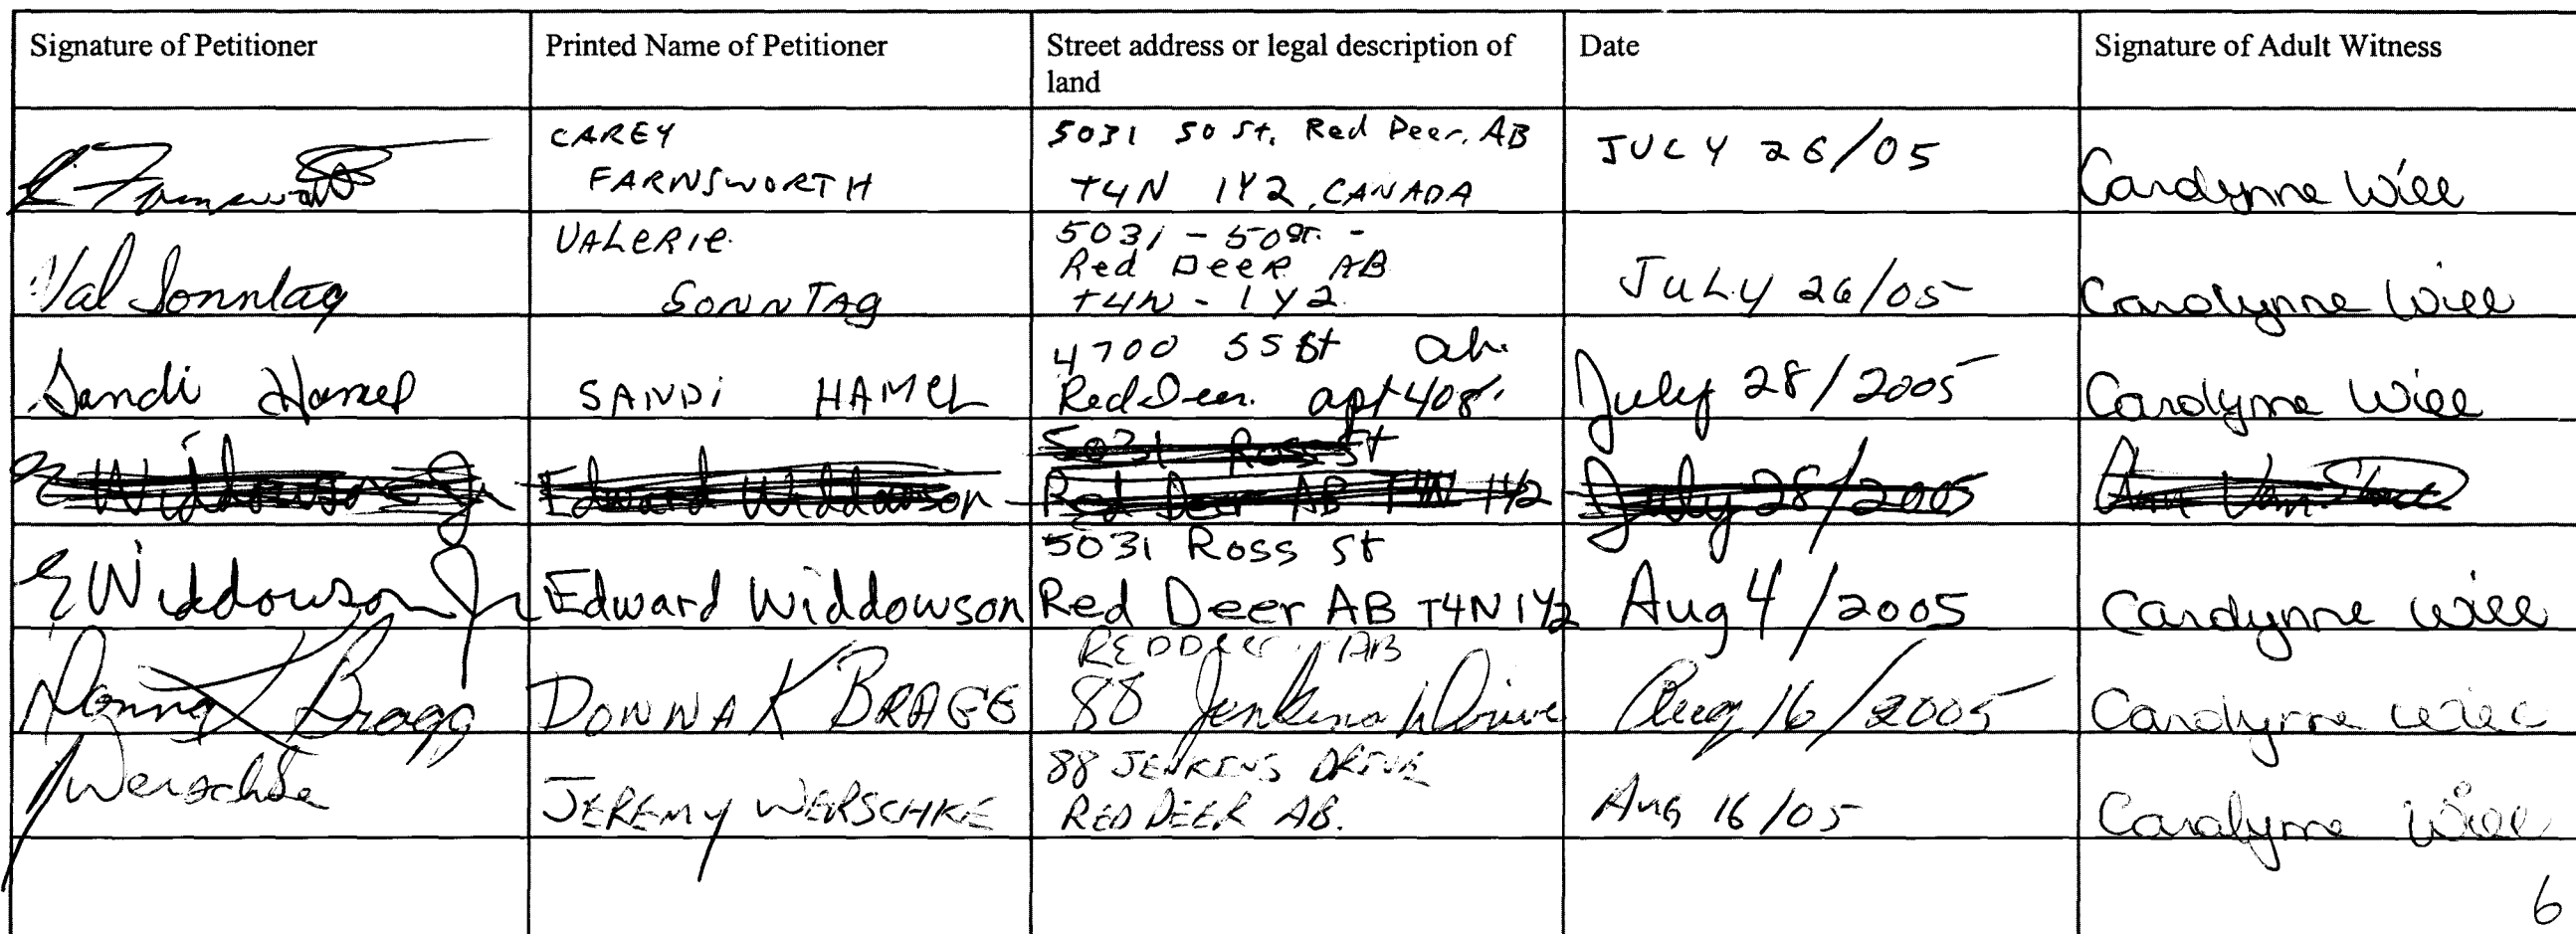 Signature of Petitioner
Printed Name of Petitioner
Street address or legal description of
land
Date
Signature of Adult Witness
Farnsworth
CAREY
FARNSWORTH
5031 50 St. Red Deer, AB
T4N 1Y2, CANADA
JULY 26/05
Carolynne Will
Val Sonntag
VALERIE
SONNTAG
5031 - 50 ST. -
Red DeeR AB
T4N - 1Y2
JULY 26/05
Carolynne Will
Sandi Hamel
SANDi HAMEL
4700 55 St ab.
Red Deer. apt 408
July 28/2005
Carolynne Will
E Widdowson Jr
Edward Widdowson
5031 Ross St
Red Deer AB T4N 1Y2
July 28/2005
Ann Van
E Widdowson Jr
Edward Widdowson
5031 Ross St
Red Deer AB T4N 1Y2
Aug 4/2005
Carolynne Will
Donna K Bragg
DONNA K BRAGG
RED DEER, AB
88 Jenkins Drive
Aug 16/2005
Carolynne Will
J Werschke
JEREMY WERSCHKE
88 JENKINS DRIVE
RED DEER AB.
AUG 16/05
Carolynne Will
6